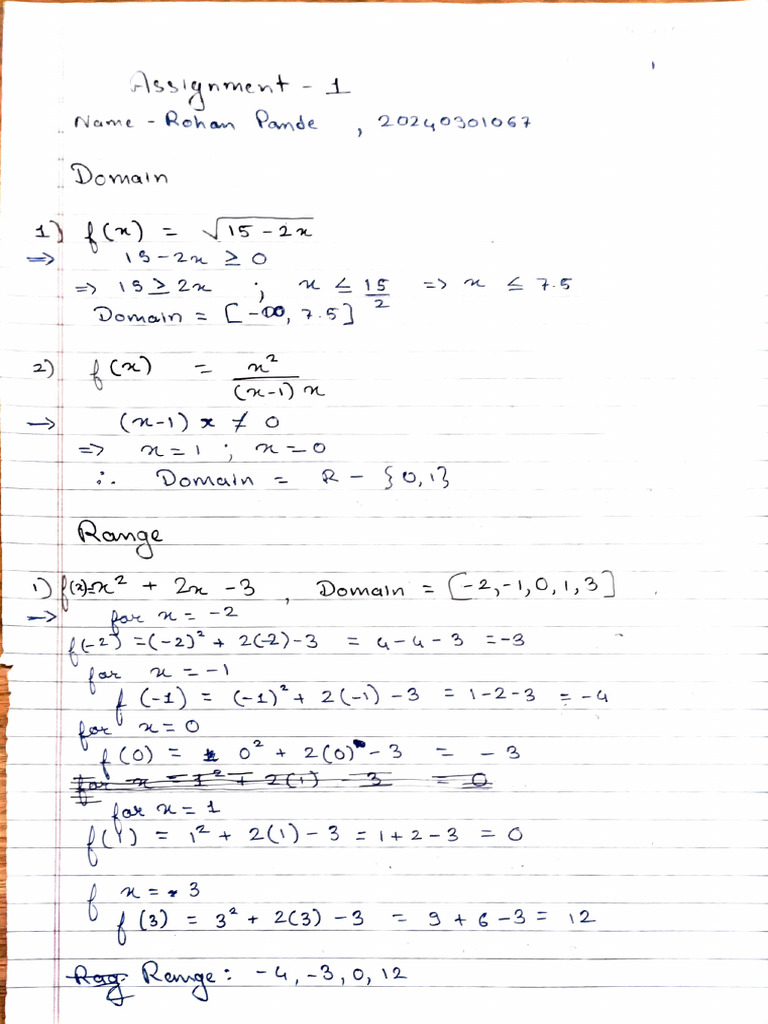 Assignment - 1
Name - Rohan Pande , 20240301067
Domain
1) f(x) = √(15-2x)
⇒ 15-2x ≥ 0
⇒ 15 ≥ 2x ; x ≤ 15/2 ⇒ x ≤ 7.5
Domain = [-∞, 7.5]
2) f(x) = x²/((x-1) x)
→ (x-1) x ≠ 0
⇒ x=1 ; x=0
∴ Domain = R - {0,1}
Range
1) f(x)=x² + 2x -3 , Domain = [-2,-1,0,1,3]
→ for x = -2
f(-2) =(-2)² + 2(-2)-3 = 4-4-3 =-3
for x = -1
f(-1) = (-1)² + 2(-1) -3 = 1-2-3 = -4
for x=0
f(0) = 0² + 2(0) -3 = -3
for x = 1² + 2(1) - 3 = 0
for x = 1
f(1) = 1² + 2(1)-3 = 1+2-3 = 0
f x = 3
f(3) = 3² + 2(3) -3 = 9 + 6 -3 = 12
Rag Range: -4, -3, 0, 12